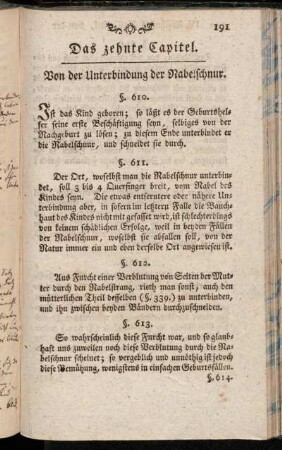 191
Das zehnte Capitel.
Von der Unterbindung der Nabelschnur.
§. 610.
Ist das Kind geboren; so läßt es der Geburtshel-
fer seine erste Beschäftigung seyn, selbiges von der
Nachgeburt zu lösen; zu diesem Ende unterbindet er
die Nabelschnur, und schneidet sie durch.
§. 611.
Der Ort, woselbst man die Nabelschnur unterbin-
det, soll 3 bis 4 Querfinger breit, vom Nabel des
Kindes seyn. Die etwas entferntere oder nähere Un-
terbindung aber, in sofern im letztern Falle die Bauch-
haut des Kindes nicht mit gefasset wird, ist schlechterdings
von keinem schädlichen Erfolge, weil in beyden Fällen
der Nabelschnur, woselbst sie abfallen soll, von der
Natur immer ein und eben derselbe Ort angewiesen ist.
§. 612.
Aus Furcht einer Verblutung von Seiten der Mut-
ter durch den Nabelstrang, rieth man sonst, auch den
mütterlichen Theil desselben (§. 339.) zu unterbinden,
und ihn zwischen beyden Bändern durchzuschneiden.
§. 613.
So wahrscheinlich diese Furcht war, und so glaub-
haft uns zuweilen noch diese Verblutung durch die Na-
belschnur scheinet; so vergeblich und unnöthig ist jedoch
diese Bemühung, wenigstens in einfachen Geburtsfällen.
§. 614.